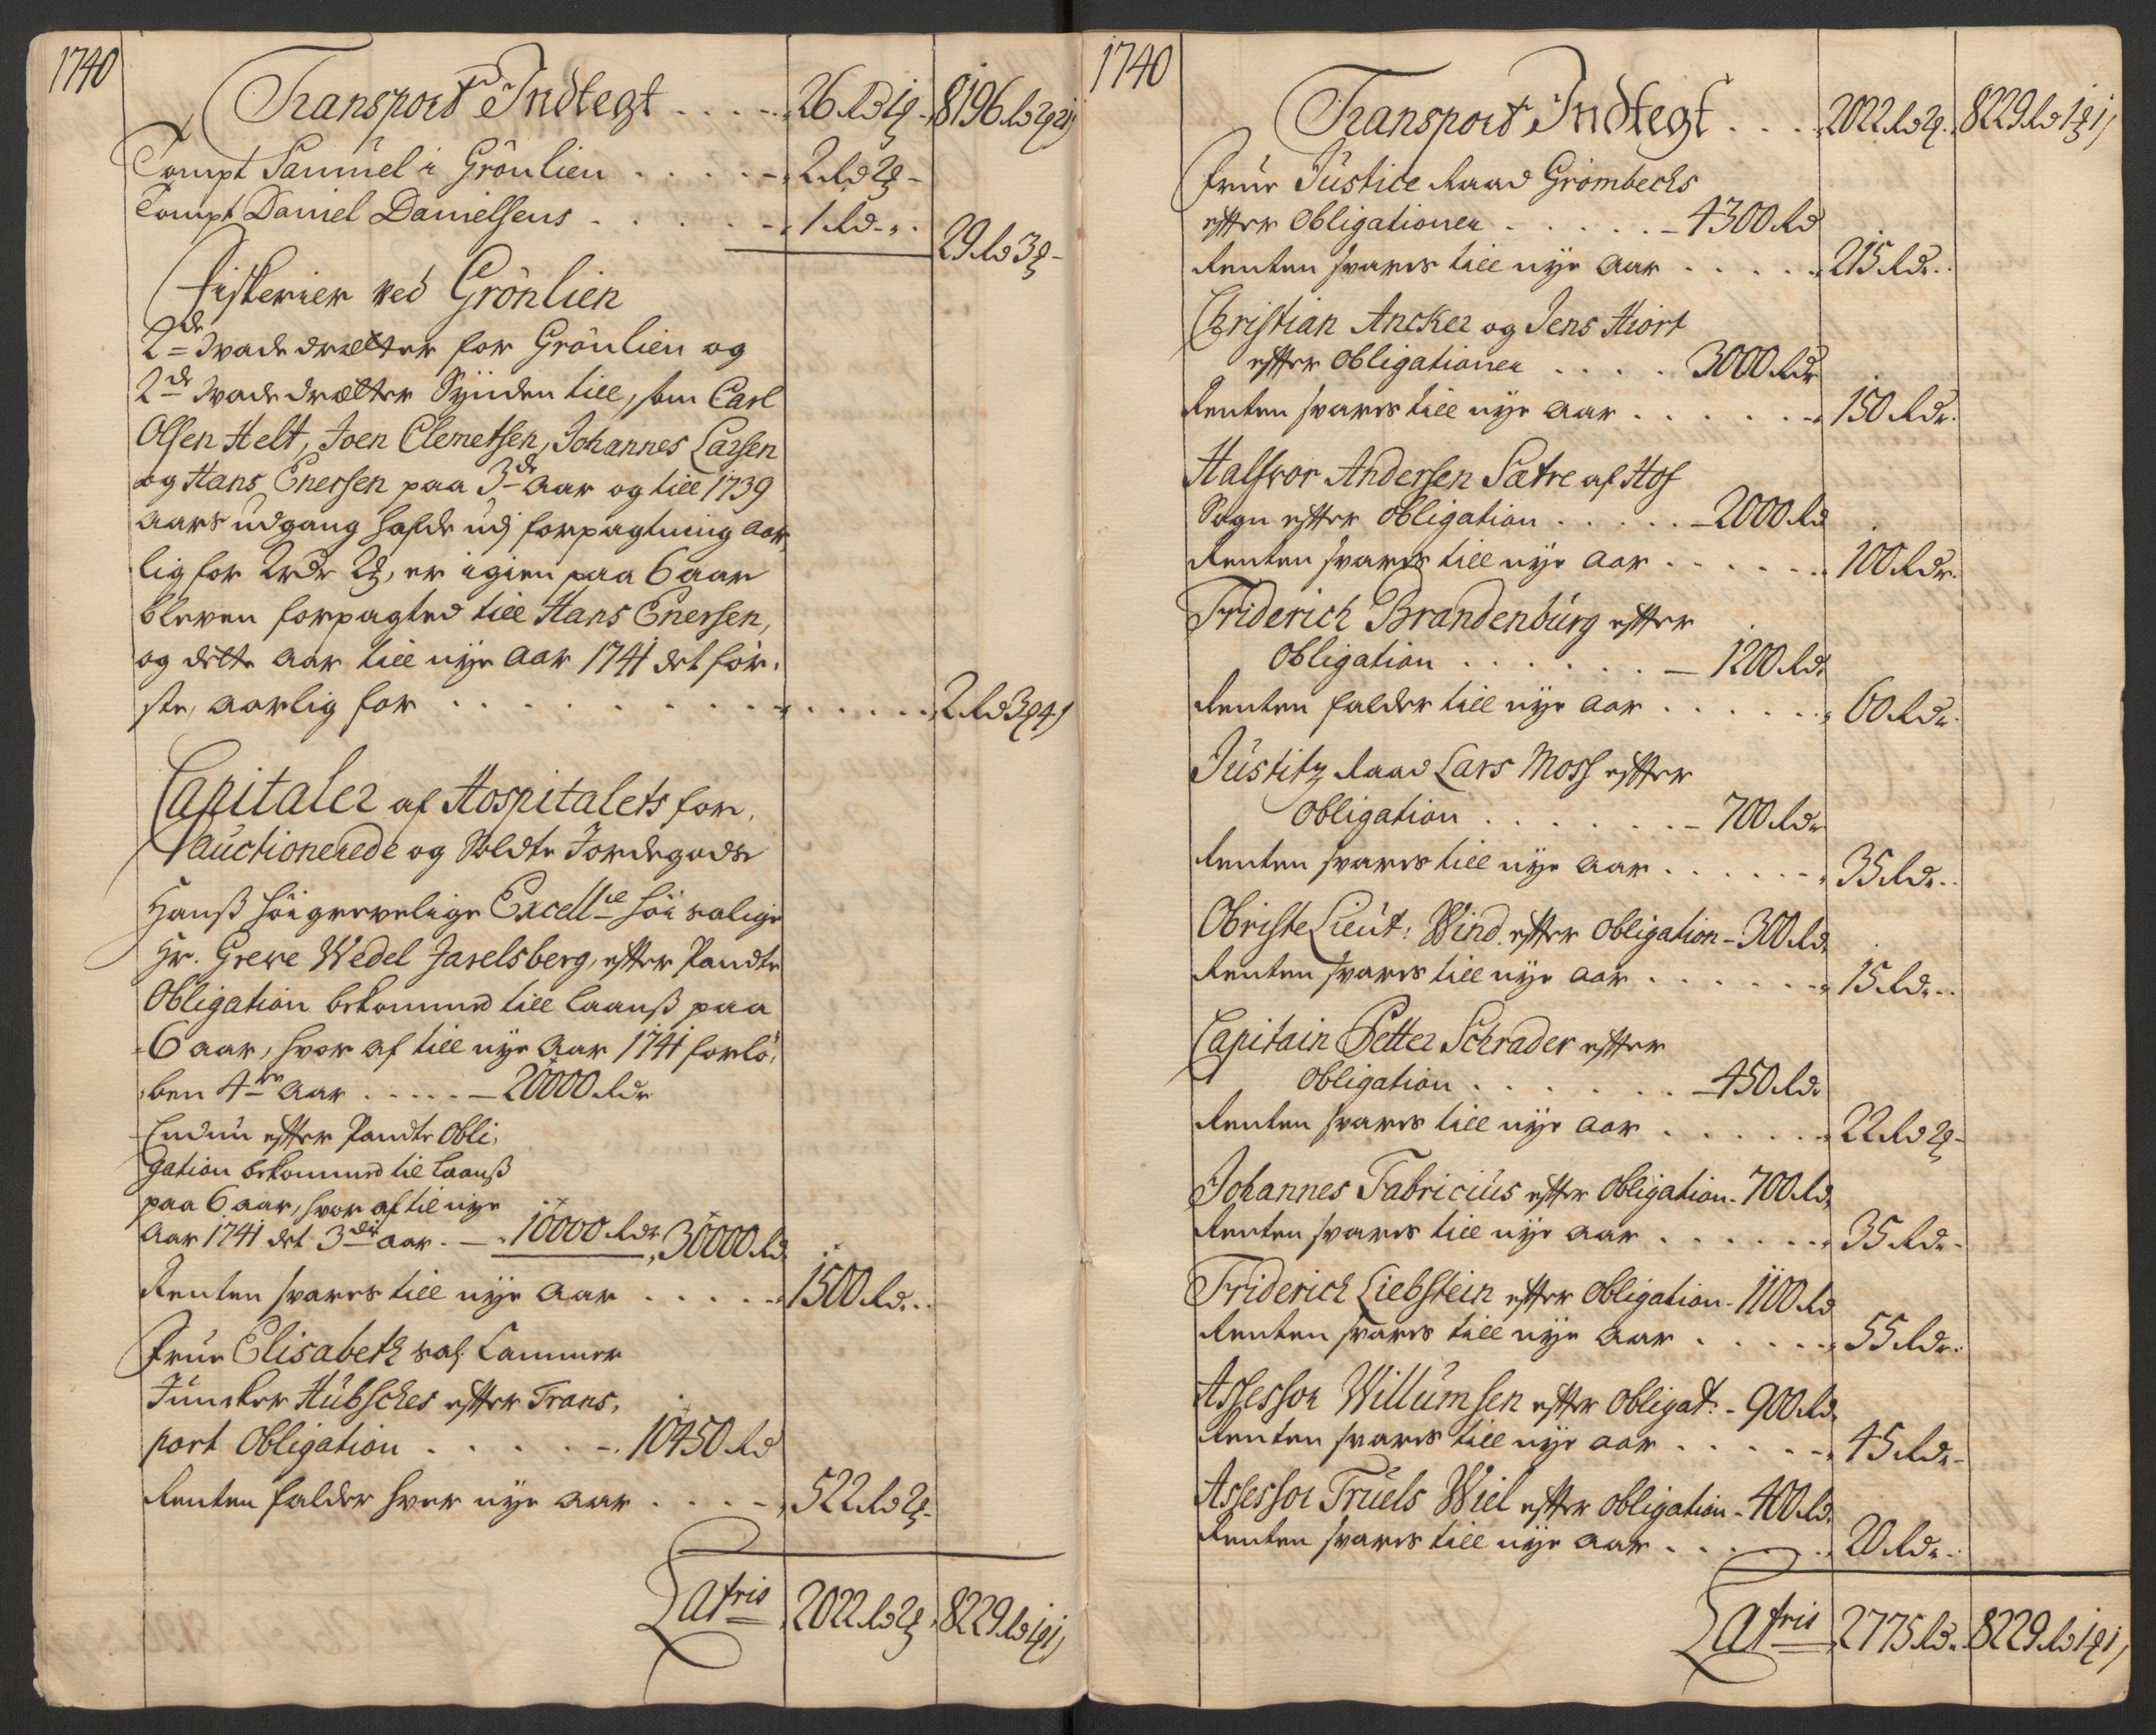 1740
Transport Indtegt . . . . . 26 Rd 1 ꝗ - 8196 Rd 2 ꝗ 21 s
Tompt Samuel i Grönlien . . . . . 2 Rd 2 ꝗ -
Tompt Daniel Danielsens . . . . . 1 Rd - „ . 29 Rd 3 ꝗ -
Fiskerier ved Grönlien
2de Wade drætter for Grönlien og
2de Wade drætter Synden till, som Carl
Olsen Helt, Joen Clemetsen, Johannes Larsen
og Hans Enersen paa 3de Aar og till 1739
Aars udgang hafde udj forpagtning Aar,
lig for 2 Rdr 2 ꝗ, er igien paa 6 aar
bleven forpagted till Hans Enersen,
og dette Aar till nye Aar 1741 det för,
ste, Aarlig for . . . . . 2 Rd 3 ꝗ 4 s
Capitaler af Hospitalets for,
Auctionerede og Soldte Jordegods
Hanß höigrevelige Excellce höi salige
Hr. Greve Wedel Jarelsberg, efter Pandte
Obligation bekommed till Laanß paa
6 aar, hvor af till nye Aar 1741 forlö,
ben 4re Aar . . . . . 20000 Rdr
Endnu efter Pandte Obli,
gation bekommed til Laanß
paa 6 aar, hvor af til nye
Aar 1741 det 3die aar . — 10000 Rdr, 30000 Rd
Renten svares till nye Aar . . . . . 1500 Rd . .
Frue Elisabeth sal. Cammer
Juncker Hübsches efter Trans,
port Obligation . . . . . 10450 Rd
Renten falder hver nye Aar . . . . 522 Rd 2 ꝗ -
Latris 2022 Rd 2 ꝗ, 8229 Rd 1 ꝗ 1 s
1740
Transport Indtegt . . . . 2022 Rd 2 ꝗ . 8229 Rd 1 ꝗ 1 s
Frue Justice Raad Grömbechs
efter Obligationen . . . . . 4300 Rd
Renten svares till nye Aar . . . . . 215 Rd . .
Christian Ancker og Jens Hiort
efter Obligationen . . . . 3000 Rdr
Renten svares till nye Aar . . . . . 150 Rdr.
Halfvor Andersen Sætre af Hof
Sogn efter Obligation . . . . . 2000 Rd
Renten svares till nye Aar . . . . . 100 Rdr.
Friderich Brandenburg efter
Obligation . . . . . 1200 Rdr
Renten falder till nye Aar . . . . . 60 Rdr.
Justitz Raad Lars Moss efter
Obligation . . . . . 700 Rdr
Renten svares till nye Aar . . . . . 35 Rdr . .
Obriste Lieut: Wind efter Obligation - 300 Rd,
Renten svares till nye Aar . . . . . 15 Rdr . .
Capitain Petter Schrader efter
Obligation . . . . . 450 Rdr
Renten svares till nye Aar . . . . . 22 Rd 2 ꝗ -
Johannes Fabricius efter Obligation - 700 Rd,
Renten svares till nye Aar . . . . . 35 Rdr -
Friderich Liebstein efter Obligation - 1100 Rd
Renten svares till nye Aar . . . . . 55 Rdr .
Assessor Willumsen efter Obligat: - 900 Rd,
Renten svares till nye Aar . . . . . 45 Rdr -
Assessor Truels Wiel efter Obligation - 400 Rd,
Renten svares till nye Aar . . . . . 20 Rdr -
Latris 2775 Rd . 8229 Rd 1 ꝗ 1 s